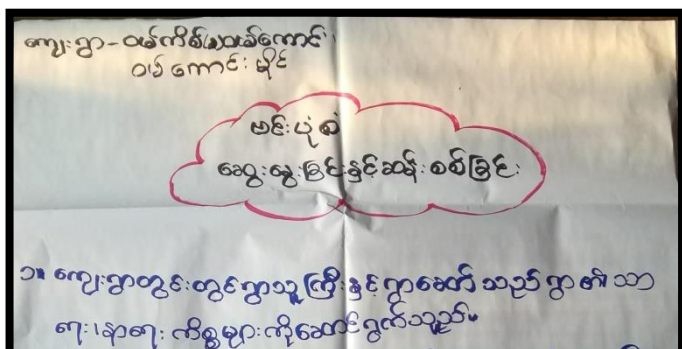 ကျေးရွာ-ဝမ်ကိစ်(မ)ဝမ်ကောင်း၊
ဝမ်ကောင်းမိုင်
ဗင်းပုံစံ
ဆွေးနွေးခြင်းနှင့်ဆန်းစစ်ခြင်း
၁။ ကျေးရွာတွင်းတွင်ရွာသူကြီးနှင့်ရွာဆော်သည်ရွာ၏သာ
ရေး၊နာရေး ကိစ္စများကိုဆောင်ရွက်သည်။